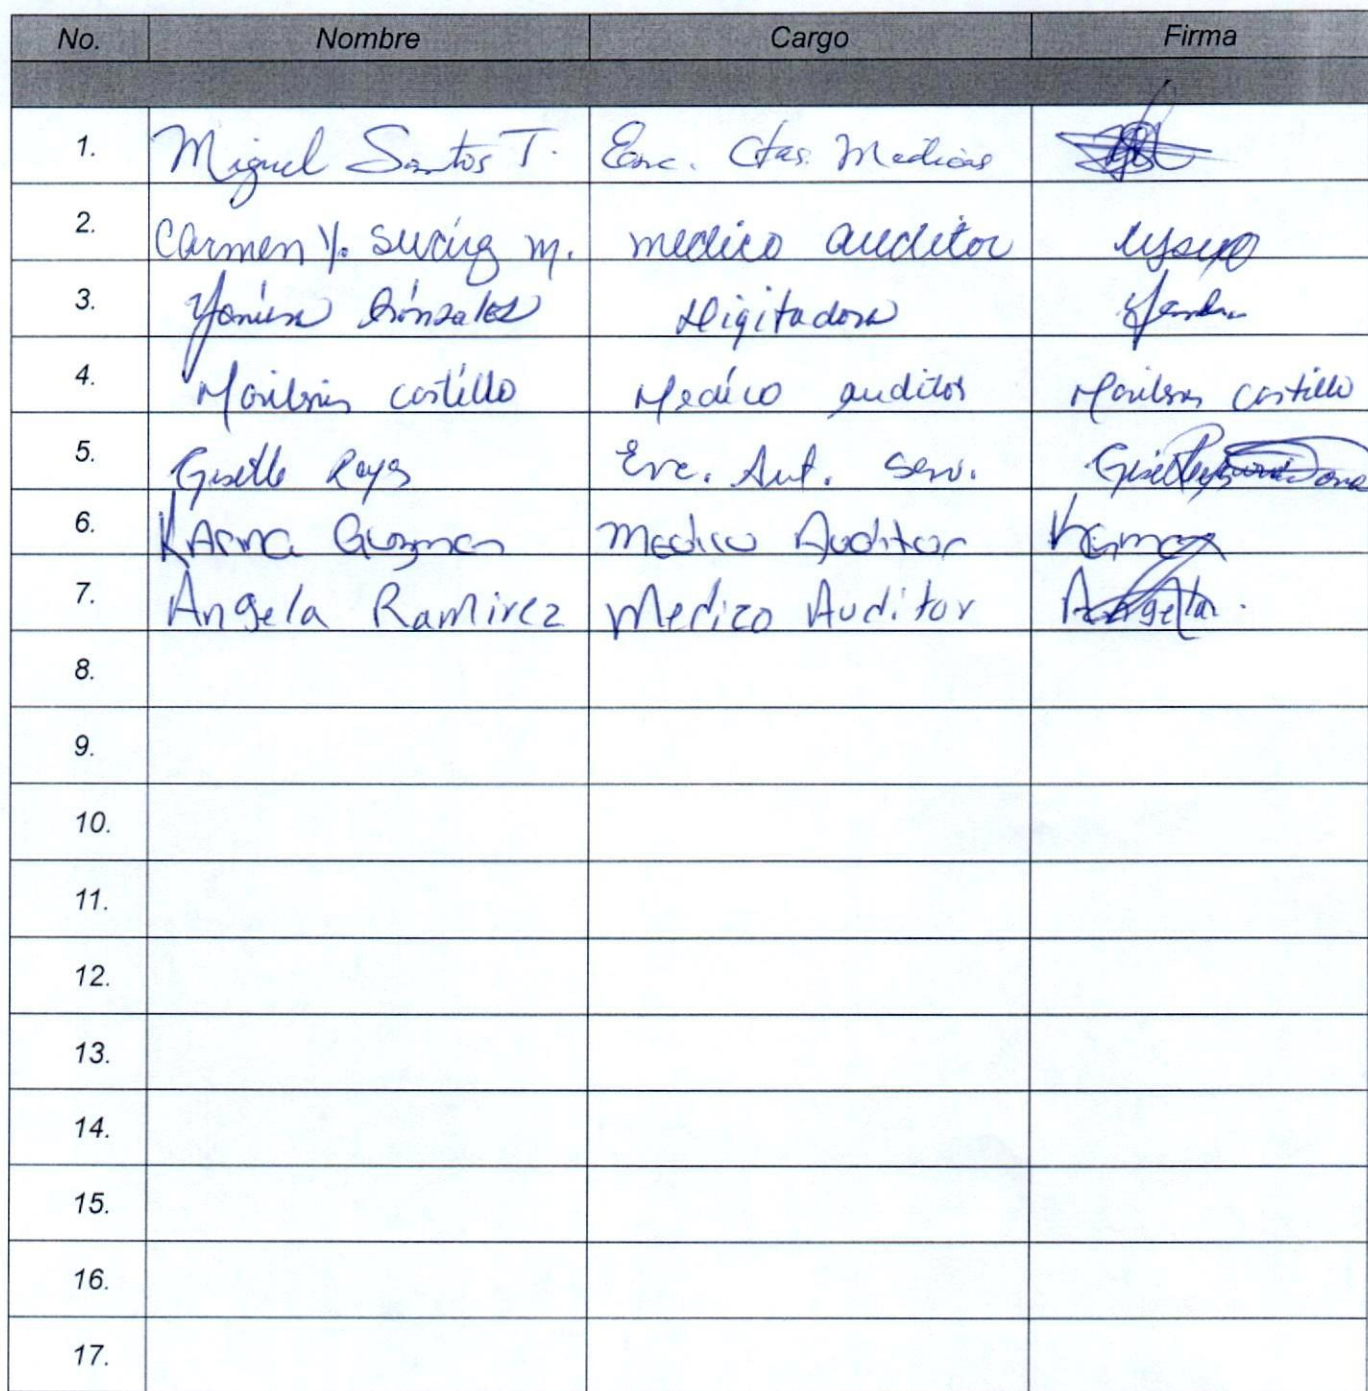 No. Nombre Cargo Firma
1. Miguel Santos T. Enc. Ctas. Medicas
2. Carmen Y. m. medico auditor
3. González Digitadora
4. castillo Medico auditor castillo
5. Giselle Reyes Enc. Aut. Serv.
6. Karina Guzman Medico Auditor
7. Angela Ramirez Medico Auditor Angela
8.
9.
10.
11.
12.
13.
14.
15.
16.
17.